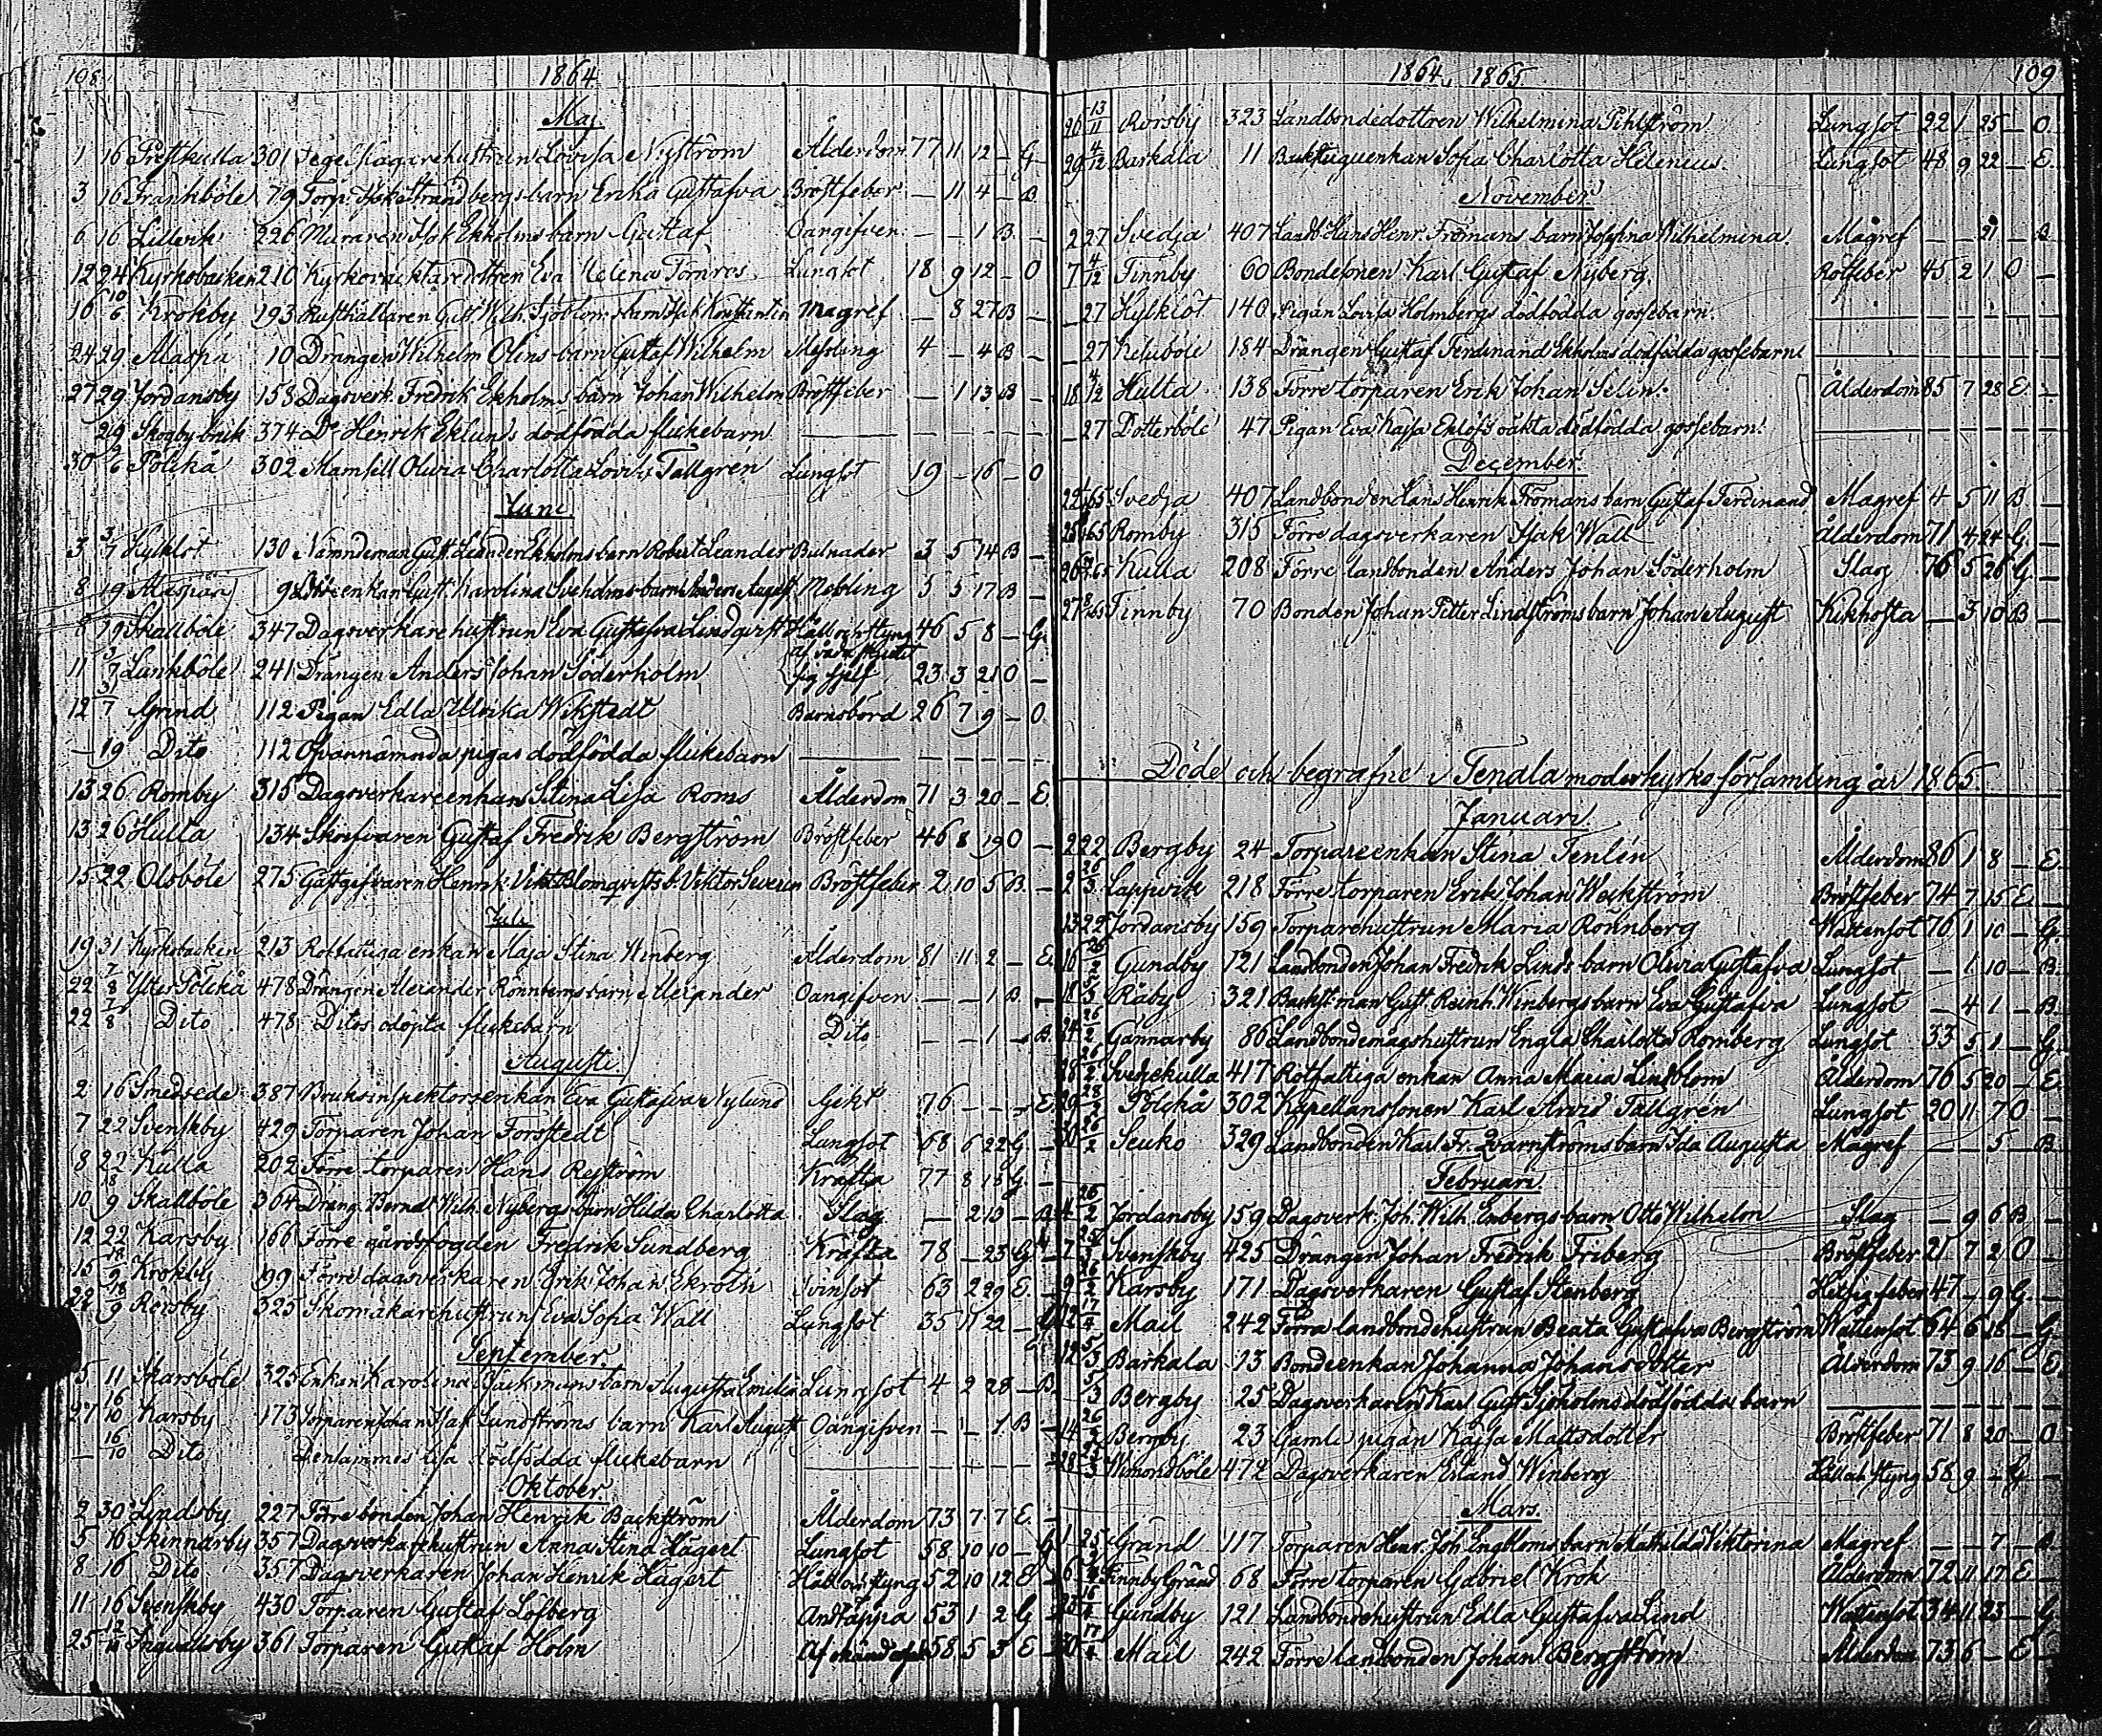 108 1864
Maj
1 16 Prestkulla 301 Tegelslagarehustrun Lovisa Nyström Ålderdom 77 11 12 — G
3 16 Frankböle 79 Torp. Isak Strandbergs barn Erika Gustafva Bröstfeber — 11 4 — B
6 16 Lillvik 226 Muraren Isak Ekholms barn Gustaf Oangifven — — 1 B —
12 24 Kyrkobacken 210 Kyrkovaktaredottren Eva Helena Törnros Lungsot 18 9 12 — O
16 10/6 Krokby 193 Rusthållaren Gust. Wilh. Sjöbloms barn Isak Konstantin Magref — 8 27 B —
24 29 Maspä 10 Drängen Wilhelm Olins barn Gustaf Wilhelm Messling 4 — 4 B —
27 29 Jordansby 158 Dagsverk. Fredrik Ekholms barn Johan Wilhelm Bröstfeber — 1 13 B —
29 Skogby bruk 374 Do Henrik Eklunds dödfödda flickebarn — — — — —
30 9/6 Pölckä 302 Mamsell Olivia Charlotta Lovisa Tallgren Lungsot 19 — 16 — O
Juni
3 3/7 Hylklot 130 Nämndeman Gust. Leander Ekholms barn Robert Leander Bulnader 3 5 14 B —
8 19 Maspää 9 enkan Gust. Karolina barn Anders August Messling 5 5 17 B —
8 19 Skallböle 347 Dagsverkarehustrun Eva Gustafva Lindqvist Håll och styng 46 5 8 — G
11 3/7 Lunkböle 241 Drängen Anders Johan Söderholm af våda skjutit sig sjelf 23 3 21 O —
12 3/7 Gränd 112 Pigan Edla Ulrika Wikstedt Barnsbörd 26 7 9 — O
— 19 Dito 112 Ofvannämnda pigas dödfödda flickebarn — — — — —
13 26 Romby 315 Dagsverkareenkan Stina Lisa Roms Ålderdom 71 3 20 — E
13 26 Hulta 134 Skrifvaren Gustaf Fredrik Bergström Bröstfeber 46 8 19 O —
15 22 Olsböle 275 Gästgifvaren Henrik Vikt. Blomqvists b. Viktor Severin Bröstfeber 2 10 5 B —
Juli
19 31 Kyrkobacken 213 Rotfattiga enkan Maja Stina Winberg Ålderdom 81 11 2 — E
22 7/8 Ytter Pölckä 478 Drängen Alexander Rönnbergs barn Alexander Oangifven — — 1 B —
22 7/8 Dito 478 Ditos odöpta flickebarn Dito — — 1 — B
Augusti
2 16 Smedsede 387 Bruksinspektorsenkan Eva Gustafva Nylund Gikt 76 — — — E
7 22 Svenskby 429 Torparen Johan Forstedt Lungsot 68 6 22 G —
8 22 Kulla 202 Förre torparen Hans Refström Kräfta 77 8 18 G —
10 18/9 Skallböle 364 Dräng. Bernd Wilh. Nybergs barn Hilda Charlotta Slag — 2 10 — B
12 22 Karsby 166 Förre gårdsfogden Fredrik Sundberg Kräfta 78 — 23 G —
15 18/9 Krokby 199 Förre dagsverkaren Erik Johan Ekroth 63 2 29 E —
22 18/9 Rörsby 325 Skomakarehustrun Eva Sofia Wall Lungsot 35 11 22 — G
September
5 11 Skarsböle 325 Enkan Karolina Backmans barn Augusta Emilia Lungsot 4 2 28 — B
27 16/10 Karsby 173 Torparen Johan Isak Lundströms barn Karl August Oangifven — — 1 B —
— 16/10 Dito Densammes dödfödda flickebarn — — — — —
Oktober
2 30 Lindsby 227 Förre bonden Johan Henrik Backström Ålderdom 73 7 7 E —
5 16 Skinnarby 357 Dagsverkarehustrun Anna Stina Hägert Lungsot 58 10 10 — G
8 16 Dito 357 Dagsverkaren Johan Henrik Hägert Håll och styng 52 10 12 E —
11 16 Svenskby 430 Torparen Gustaf Löfberg Andtäppa 53 1 2 G —
25 12/11 Ingvallsby 361 Torparen Gustaf Holm Af okänd 58 5 3 E —
1864, 1865 109
26 13/11 Rörsby 323 Landbondedottren Wilhelmina Pihlström Lungsot 22 1 25 — O
29 4/12 Barkala 11 enkan Sofia Charlotta Helenius Lungsot 48 9 22 — E
November
2 27 Svedja 407 Landb. Hans Henr. Fromans barn Josefina Wilhelmina Magref — — 21 — B
7 4/12 Finnby 60 Bondesonen Karl Gustaf Nyberg Rötfeber 45 2 1 O —
— 27 Hylklot 140 Pigan Lovisa Holmbergs dödfödda gossebarn — — — — —
— 27 Keluböle 184 Drängen Gustaf Ferdinand Ekholms dödfödda gossebarn — — — — —
18 4/12 Hulta 138 Förre torparen Erik Johan Selin Ålderdom 85 7 28 E —
— 27 Dotterböle 47 Pigan Eva Kajsa Enlöfs oäkta dödfödda gossebarn — — — — —
December
22 Svedja 407 Landbonden Hans Henrik Fromans barn Gustaf Ferdinand Magref 4 5 11 B —
25 Romby 315 Förre dagsverkaren Isak Wall Ålderdom 71 4 24 G —
26 Kulla 208 Förre landbonden Anders Johan Söderholm Slag 76 5 26 G —
27 Finnby 70 Bonden Johan Petter Lindströms barn Johan August Kikhosta — 3 10 B —
Döde och begrafne i Tenala moderkyrkoförsamling år 1865
Januari
2 22 Bergby 24 Torpareenkan Stina Tenlén Ålderdom 86 1 8 — E
2 26/3 Lappvik 218 Förre torparen Erik Johan Weckström Bröstfeber 74 7 15 E —
13 22 Jordansby 159 Torparehustrun Maria Rönnberg Wattensot 70 1 10 — G
16 26/2 Gundby 121 Landbonden Johan Fredrik Linds barn Olivia Gustafva Lungsot — 1 10 — B
18 5/3 Råby 321 Backst.man Gust. Reinh. Winbergs barn Eva Gustafva Lungsot — 4 1 — B
24 26/2 Gännarby 86 Landbondemågshustrun Engla Charlotta Romberg Lungsot 33 5 1 — G
28 26/2 Svedjekulla 417 Rotfattiga enkan Anna Maria Lindblom Ålderdom 76 5 20 — E
29 Pölckä 302 Kapellanssonen Karl Arvid Tallgrén Lungsot 20 11 7 O —
30 26/2 Seuko 329 Landbonden Karl Fr. Qvarnströms barn Ida Augusta Magref — — 5 — B
Februari
4 26/2 Jordansby 159 Dagsverk. Joh. Wilh. Enbergs barn Otto Wilhelm Slag — 9 6 B —
7 Svenskby 425 Drängen Johan Fredrik Friberg Bröstfeber 21 7 2 O —
9 Karsby 171 Dagsverkaren Gustaf Stenberg Hetsig feber 47 — 9 G —
12 17/4 Mail 242 Förra landbondehustrun Beata Gustafva Bergström Wattensot 64 6 18 — G
12 5/3 Barkala 13 Bondeenkan Johanna Johansdotter Ålderdom 73 9 16 — E
— 5/3 Bergby 25 Dagsverkaren Karl Gust. Sjöholms dödfödda barn — — — — —
14 26 Bergby 23 Gamle pigan Kajsa Mattsdotter Bröstfeber 71 8 20 — O
28 Wimondböle 472 Dagsverkaren Erland Winberg Håll och styng 58 9 — G —
Mars
1 25 Gränd 117 Torparen Henr. Joh. Engbloms barn Mathilda Viktorina Magref — — 7 — B
6 Finnby Gränd 68 Förre torparen Gabriel Krok Ålderdom 72 11 17 E —
23 16/4 Gundby 121 Landbondehustrun Edla Gustafva Lind Wattensot 34 11 23 — G
30 17/4 Mail 242 Förre landbonden Johan Bergström Ålderdom 73 6 — E —